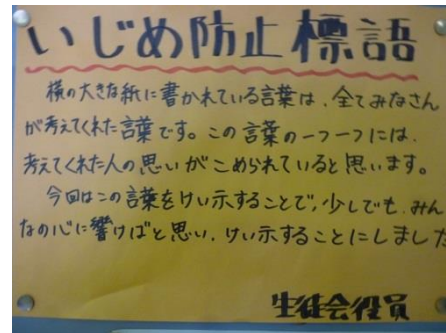 いじめ防止標語
横の大きな紙に書かれている言葉は、全てみなさん
が考えてくれた言葉です。この言葉の一つ一つには、
考えてくれた人の思いがこめられていると思います。
今回はこの言葉をけい示することで、少しでも、みん
なの心に響けばと思い、けい示することにしました
生徒会役員